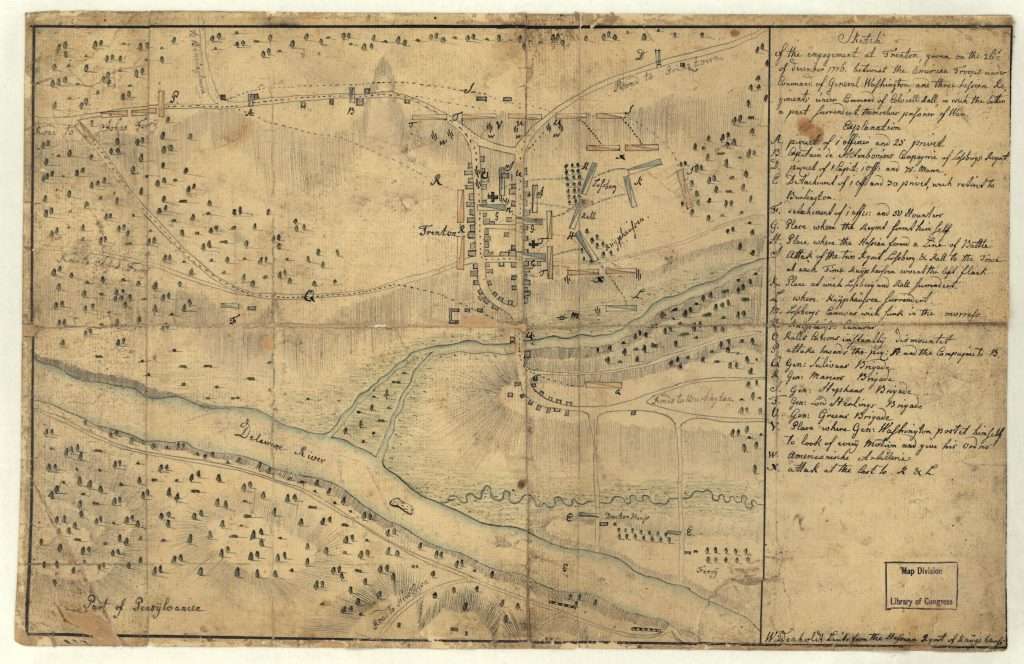 Sketch
of the engagement at Trenton, given on the 26th
of december 1776. betwixt the American Troops under
Command of General Washington, and three Hessian Re-
giments under Command of Colonell Rall, in wich the latter
a part surrendert themselves prisoner of War
Explanation
A. piquet of 1 officer and 25 privet
B. Captain de Altenbocums Compagnie of Losbergs Regmt
D. piquet of 1 Capit: 1 offi: and 75 Mann
E. Detachment of 1 offi: and 30 privet, wich retired to
Burlington
F. detachement of 1 offi: and 50 Mounters
G. Place where the Regmt form himself
H. Place where the Hessian form a Line of Battle
J. Attak of the two Regmt Losberg & Rall to the Town
at each Time Knyphausen covert the left flank
K. Place at wich Losberg and Rall surrendert
L. where Knyphausen surrendert
M. Losbergs Cannons wich sunk in the morress
N. Knyphaus: Cannons
O. Ralls Canons instantly dismounted
P. attak towards the piq: A and the Compagnie B
Q. Gen: Sulivans Brigade
R. Gen: Brigade
S. Gen: Stephens Brigade
T. Gen: Lord Sterlings Brigade
U. Gen: Greens Brigade
V. Place where Gen: Washington postet himself
to look of every Motion and give his Orders
W. Americanische Artillerie
X. attak at the last to K & L
Road to Princetown
Trenton
Losberg
Rall
Knyphausen
Delaware River
Road to Burlington
Doctor House
Ferry
Part of Pensylvanien
Map Division
Library of Congress
Lieut: from the Hessian Regmt of Knÿphaus: